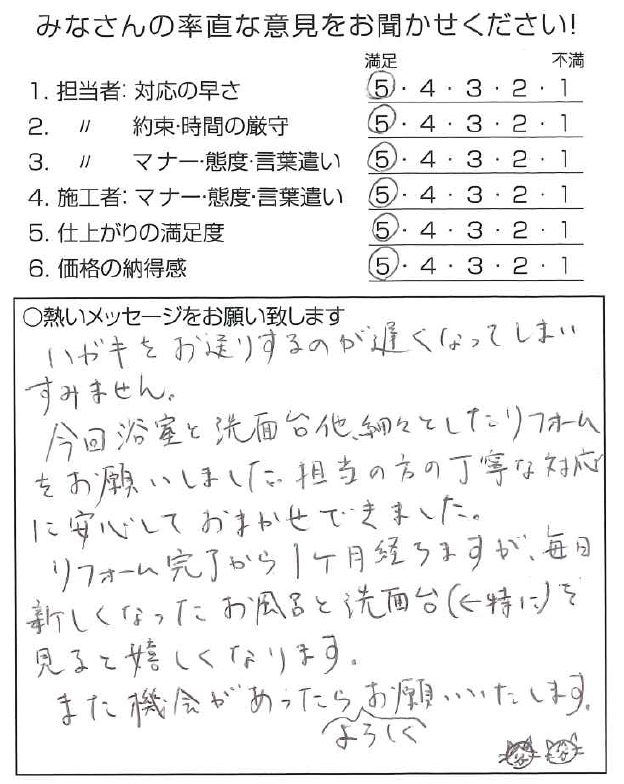 みなさんの率直な意見をお聞かせください!
満足 不満
1. 担当者: 対応の早さ 5・4・3・2・1
2. 〃 約束・時間の厳守 5・4・3・2・1
3. 〃 マナー・態度・言葉遣い 5・4・3・2・1
4. 施工者: マナー・態度・言葉遣い 5・4・3・2・1
5. 仕上がりの満足度 5・4・3・2・1
6. 価格の納得感 5・4・3・2・1
○熱いメッセージをお願い致します
ハガキをお送りするのが遅くなってしまい
すみません。
今回浴室と洗面台他、細々としたリフォーム
をお願いしました。担当の方の丁寧な対応
に安心しておまかせできました。
リフォーム完了から1ケ月経ちますが、毎日
新しくなったお風呂と洗面台(←特に)を
見ると嬉しくなります。
また機会があったらお願いいたします。
よろしく